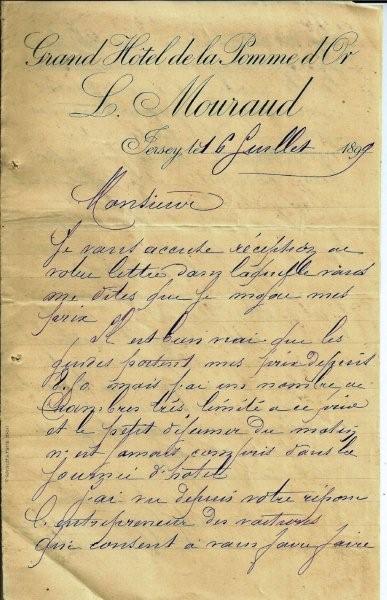 Grand Hôtel de la Pomme d'Or
L. Mouraud
Jersey, le 16 Juillet 1899
Monsieur
Je vous accuse réception de
votre lettre dans laquelle vous
me dites que je mes
prix
Il est bien vrai que les
guides portent mes prix depuis
8.50 mais j'ai un nombre de
chambres très limité a ce prix
et le petit déjeuner du matin
n'est jamais compris dans la
journée d'hotel
j'ai vu depuis votre réponse
l'entrepreneur des voitures
qui consent à vous faire faire